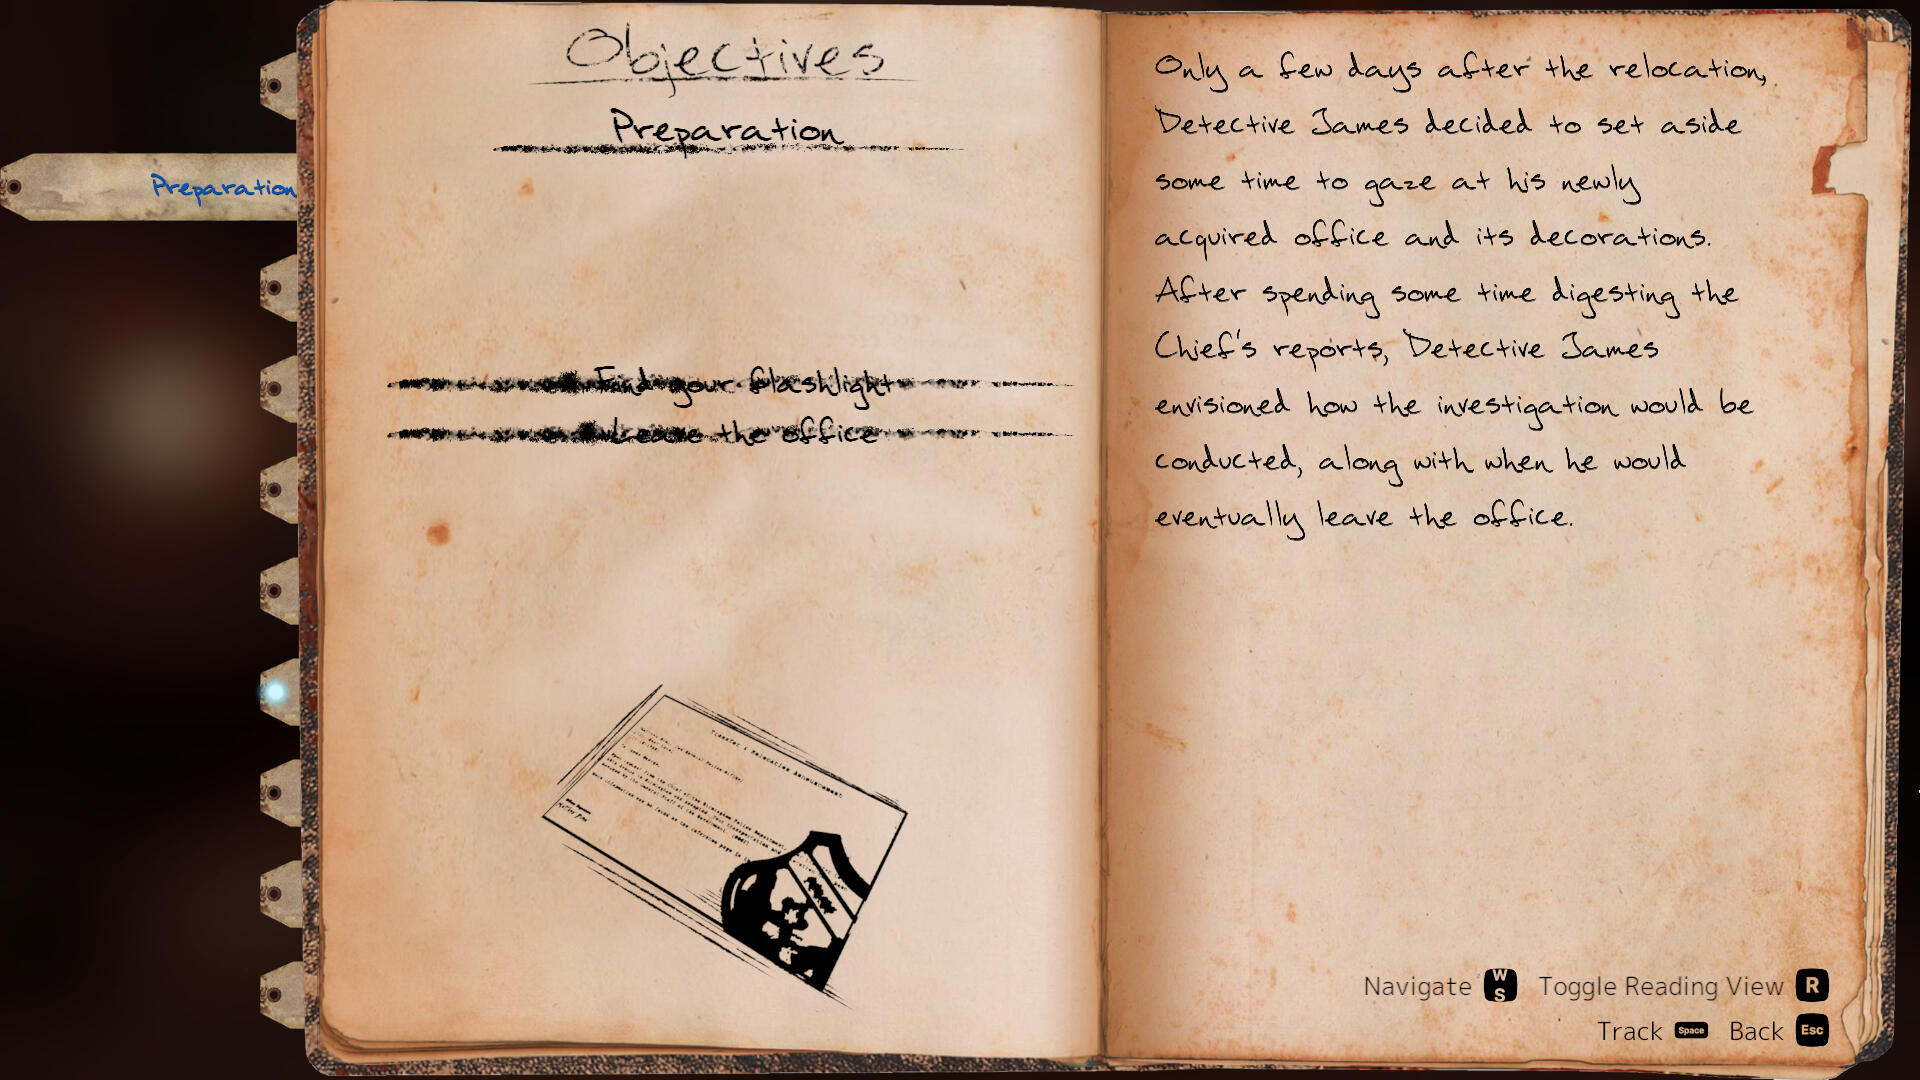 Objectives
Preparation
Preparation
Find your flashlight
Leave the office
Transfer & Relocation Announcement
Only a few days after the relocation,
Detective James decided to set aside
some time to gaze at his newly
acquired office and its decorations.
After spending some time digesting the
Chief's reports, Detective James
envisioned how the investigation would be
conducted, along with when he would
eventually leave the office.
Navigate W S Toggle Reading View R
Track Space Back Esc